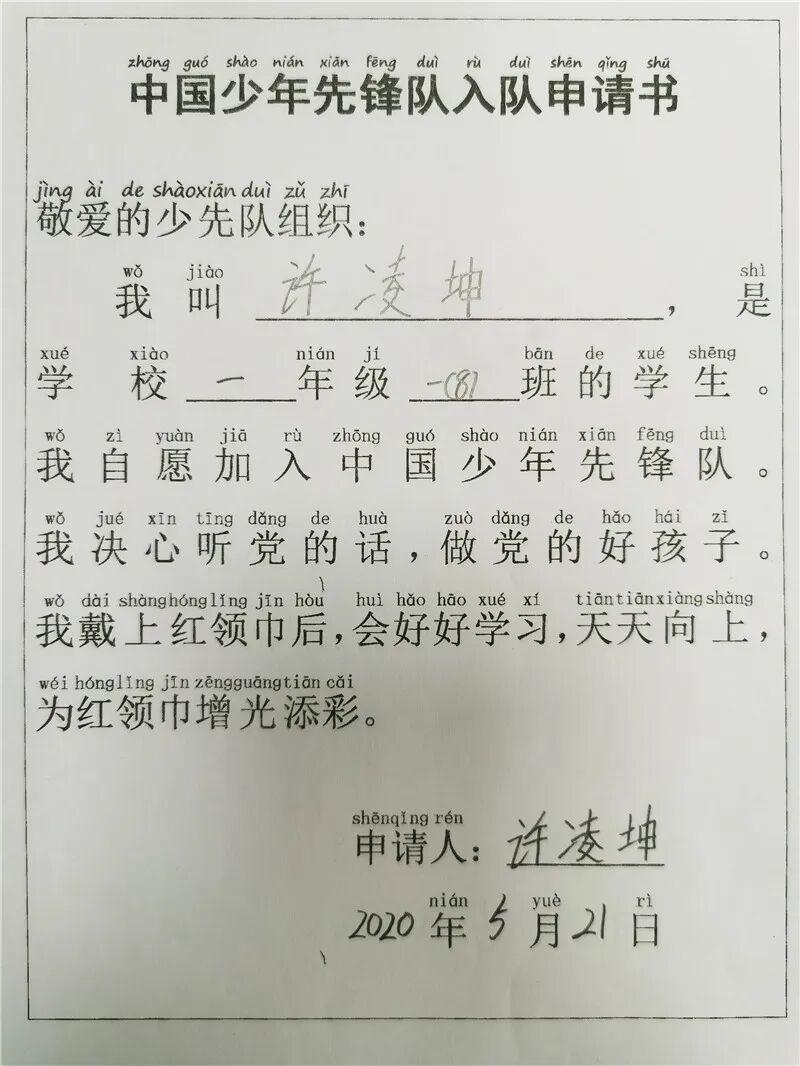 zhōng guó shào nián xiān fēng duì rù duì shēn qǐng shū
中国少年先锋队入队申请书
jìng ài de shàoxiān duì zǔ zhī
敬爱的少先队组织：
wǒ jiào shì
我叫 许凌坤 ，是
xué xiào nián jí bān de xué shēng
学校 一 年级 一(8) 班的学生。
wǒ zì yuàn jiā rù zhōng guó shào nián xiān fēng duì
我自愿加入中国少年先锋队。
wǒ jué xīn tīng dǎng de huà zuò dǎng de hǎo hái zǐ
我决心听党的话，做党的好孩子。
wǒ dài shàng hóng lǐng jīn hòu huì hǎo hǎo xué xí tiān tiān xiàng shàng
我戴上红领巾后，会好好学习，天天向上，
wéi hóng lǐng jīn zēng guāng tiān cǎi
为红领巾增光添彩。
shēnqǐng rén
申请人：许凌坤
nián yuè rì
2020 年 5 月 21 日